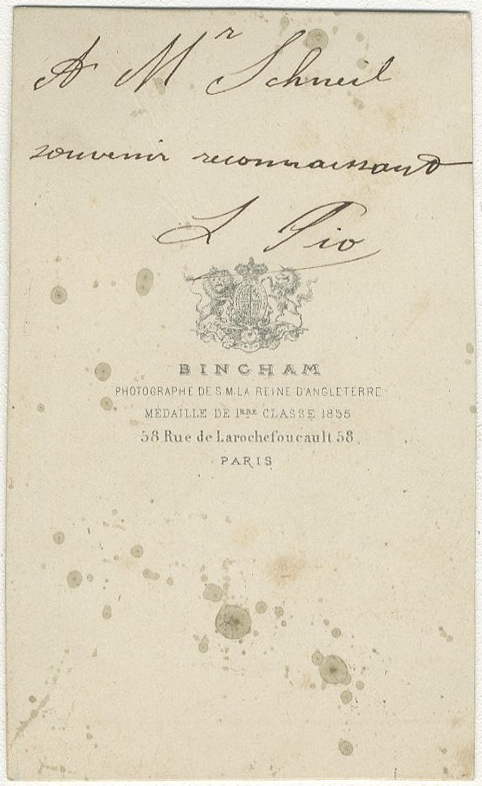 A Mr Schneil
souvenir reconnaissant
L Pio
BINGHAM
PHOTOGRAPHE DE S.M. LA REINE D'ANGLETERRE
MÉDAILLE DE 1ERE CLASSE 1855
58 Rue de Larochefoucault 58.
PARIS